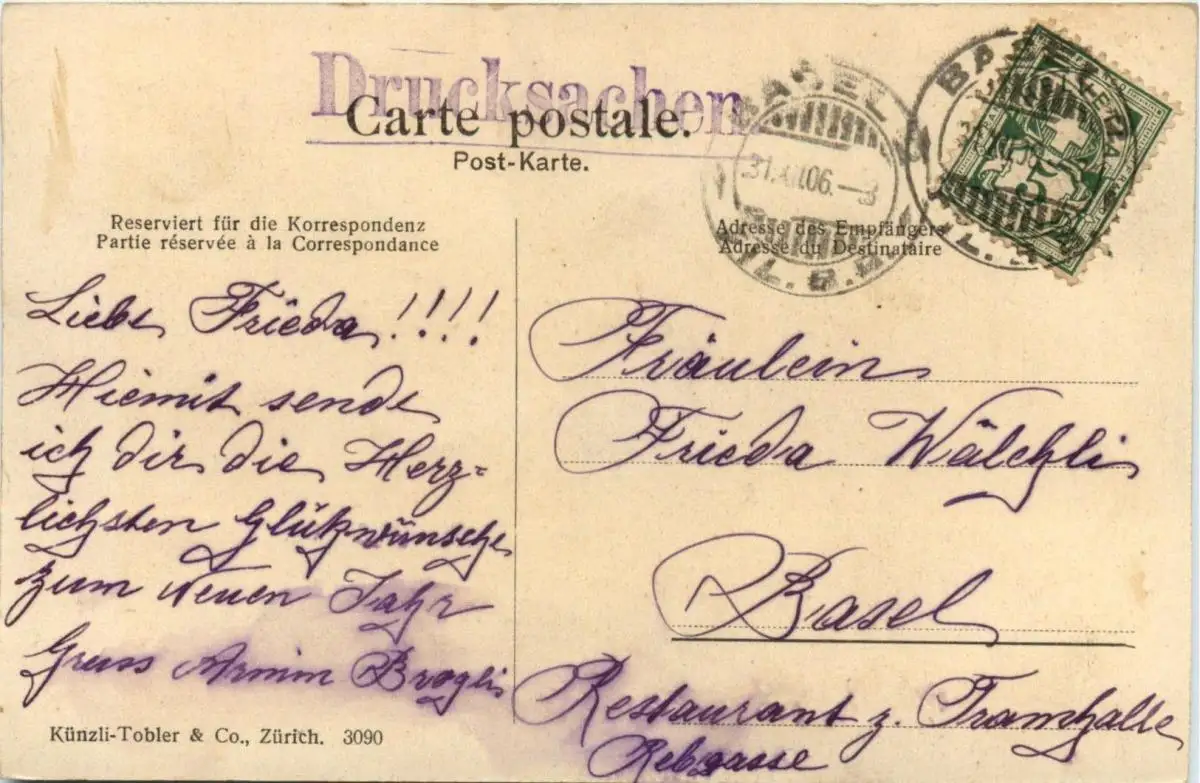 Drucksachen
Carte postale.
Post-Karte.
BASEL
31.XII.06.
BASEL
5
Reserviert für die Korrespondenz
Partie réservée à la Correspondance
Adresse des Empfängers
Adresse du Destinataire
Liebe Frieda!!!!
Hiemit sende
ich dir die Herz=
lichsten Glükwünsche
zum Neuen Jahr
Gruss Armin Brogli
Fräulein
Frieda Wälchli
Basel
Restaurant z. Tramhalle
Rebgasse
Künzli-Tobler & Co., Zürich. 3090